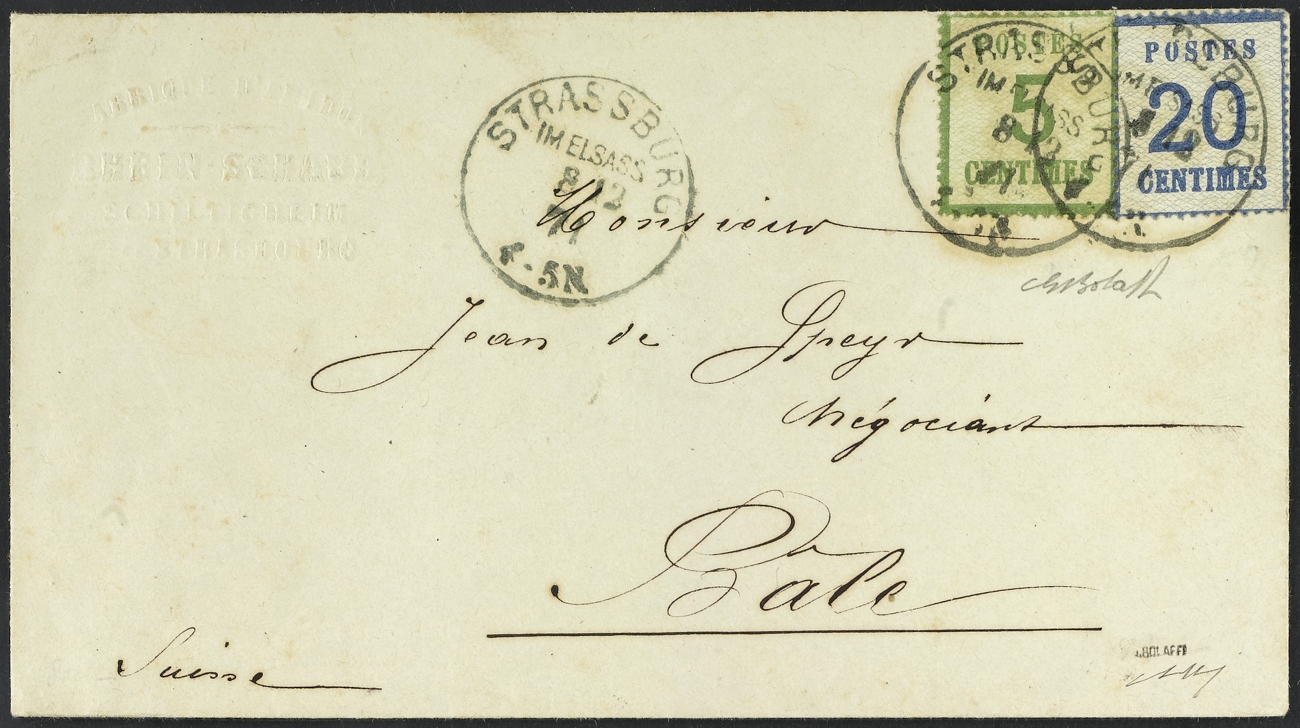 FABRIQUE D'AMIDON
RHEIN-SCHAAL
SCHILTIGHEIM
STRASBOURG
STRASSBURG
IM ELSASS
8 12
71
4-5N
POSTES
5
CENTIMES
POSTES
20
CENTIMES
STRASSBURG
IM ELSASS
8 12
STRASSBURG
Monsieur
Jean de Speyr
Négociant
Bâle
Suisse
A.BOLAFFI